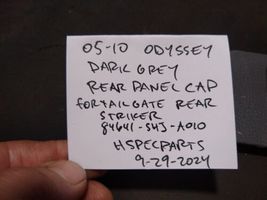 05-10 ODYSSEY
DARK GREY
REAR PANEL CAP
FOR TAILGATE REAR
STRIKER
84641-SHJ-A010
HSPECPARTS
9-29-2024